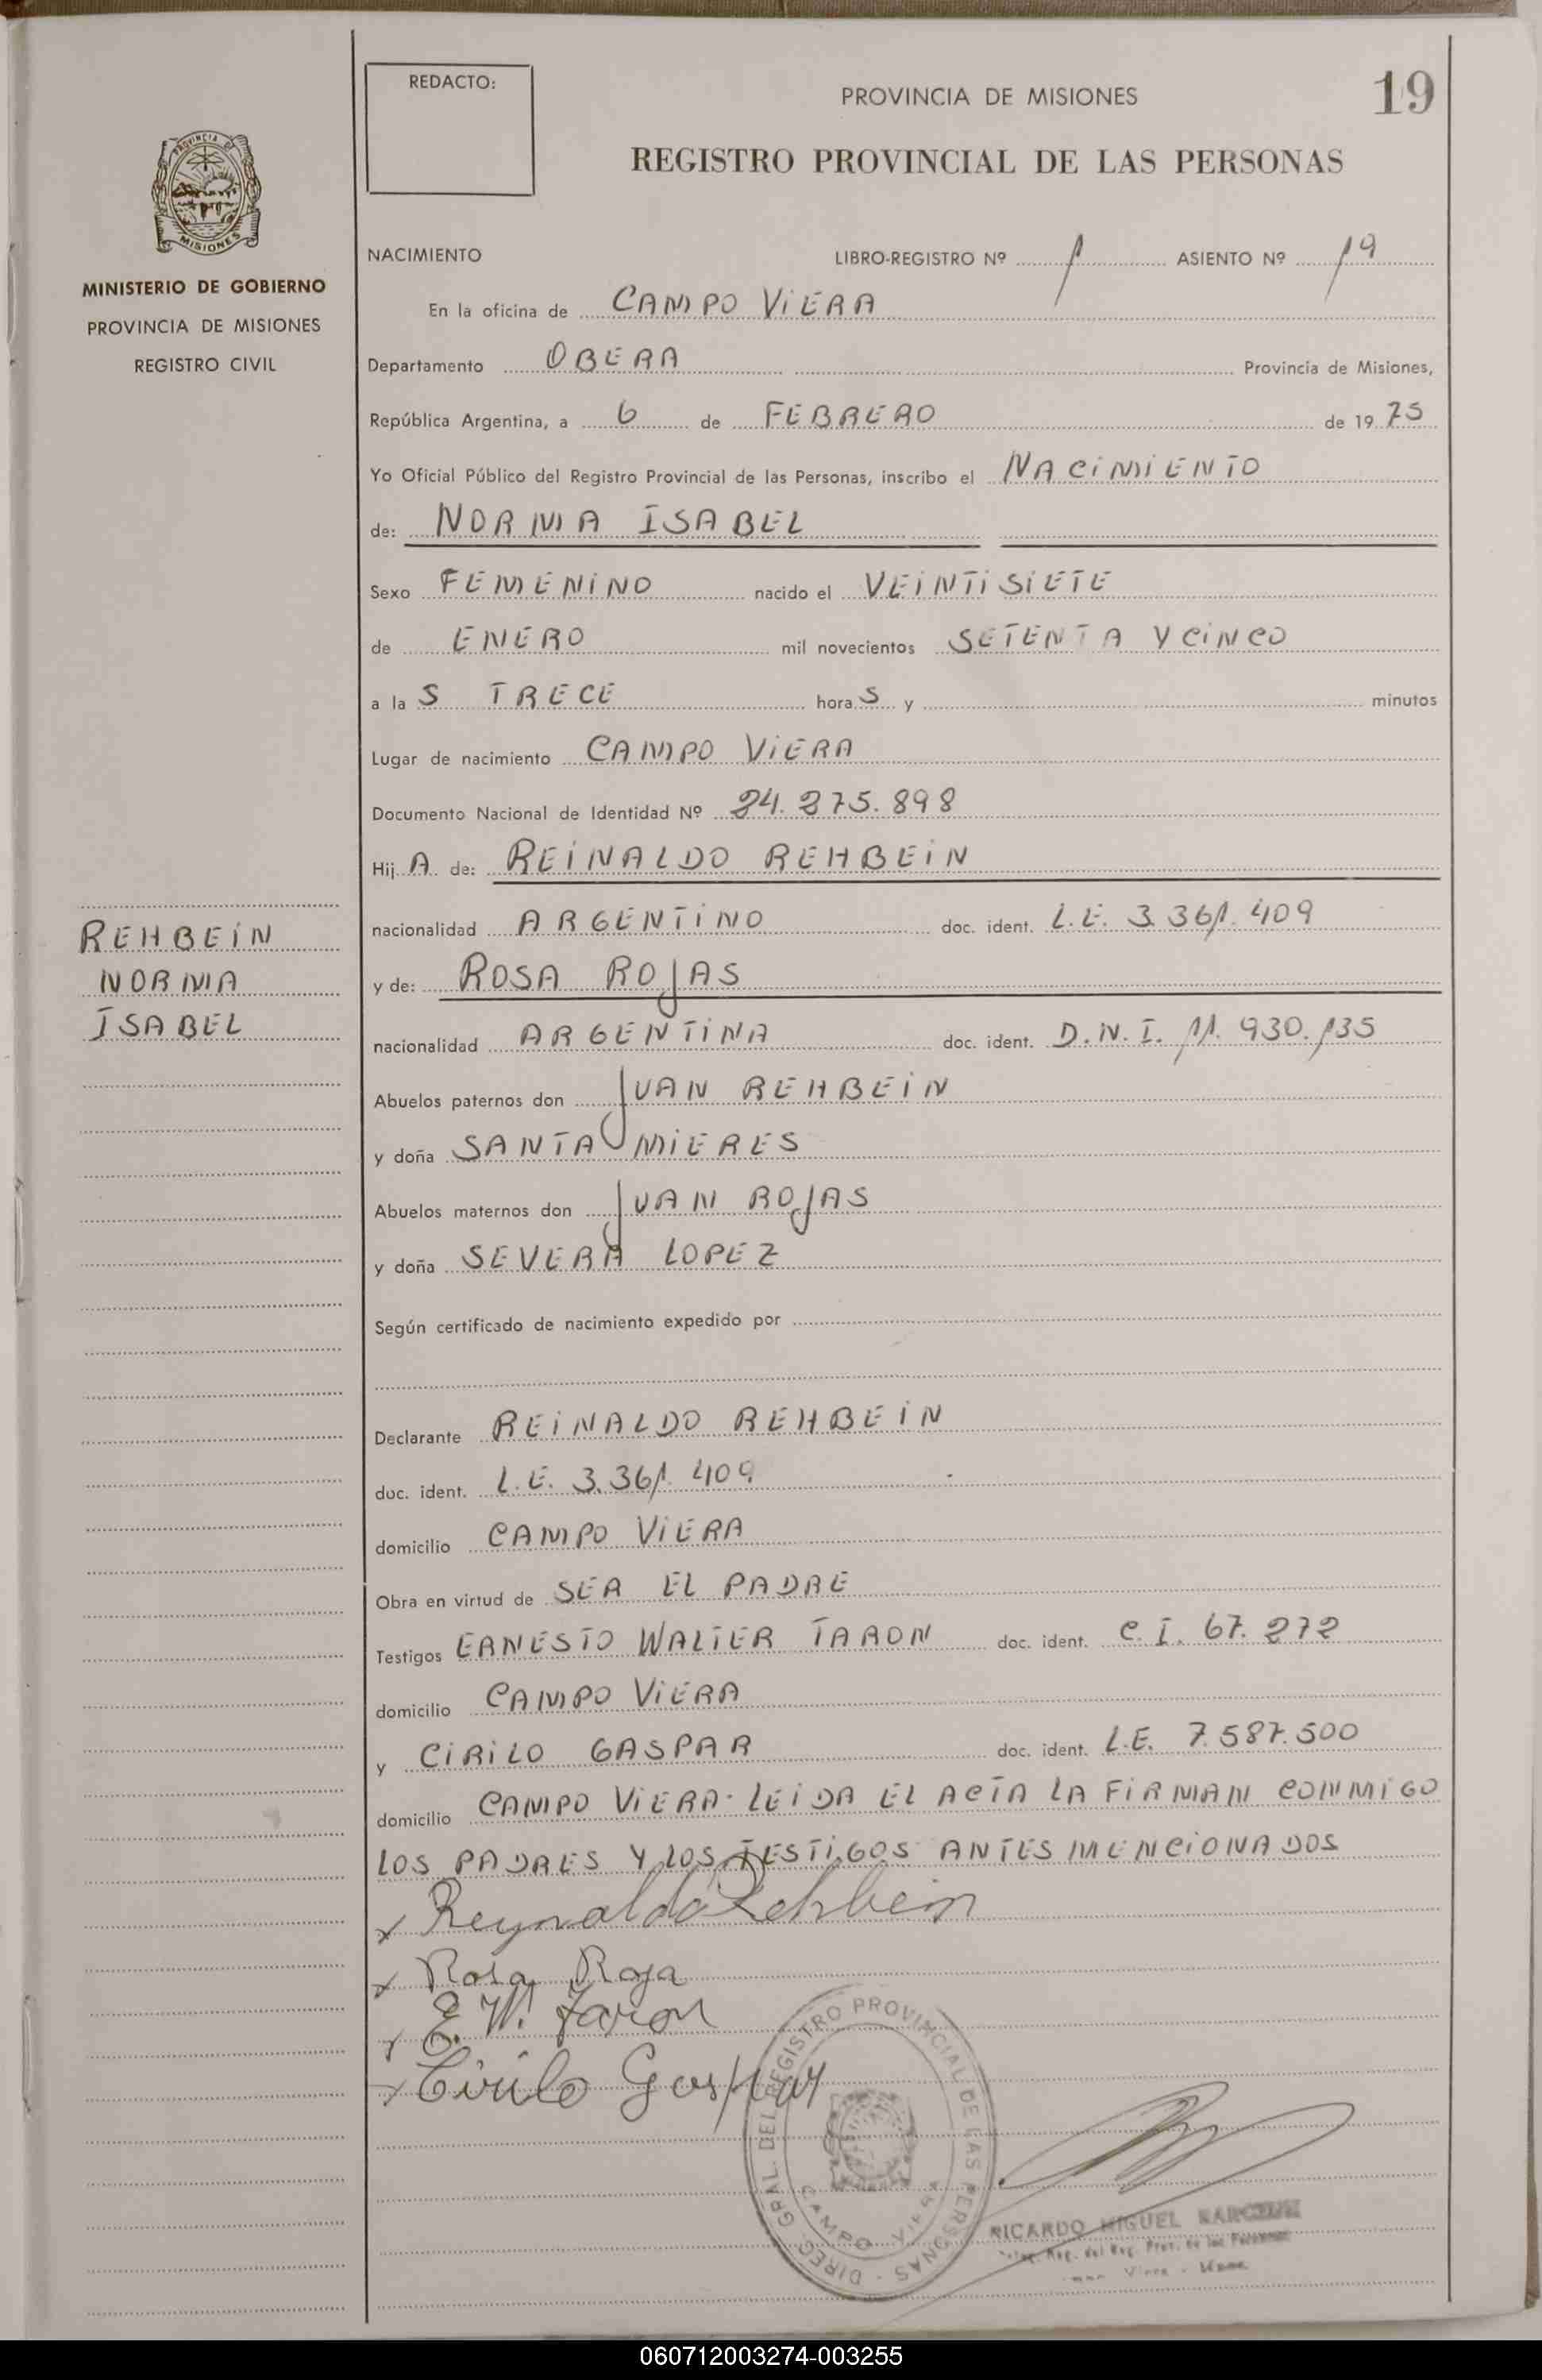 REDACTO:
PROVINCIA DE MISIONES
19
REGISTRO PROVINCIAL DE LAS PERSONAS
PROVINCIA DE
MISIONES
MINISTERIO DE GOBIERNO
PROVINCIA DE MISIONES
REGISTRO CIVIL
NACIMIENTO LIBRO-REGISTRO Nº 1 ASIENTO Nº 19
En la oficina de CAMPO VIERA
Departamento OBERA Provincia de Misiones,
República Argentina, a 6 de FEBRERO de 1975
Yo Oficial Público del Registro Provincial de las Personas, inscribo el NACIMIENTO
de: NORMA ISABEL
Sexo FEMENINO nacido el VEINTISIETE
de ENERO mil novecientos SETENTA Y CINCO
a la S TRECE hora S y minutos
Lugar de nacimiento CAMPO VIERA
Documento Nacional de Identidad Nº 24.275.898
Hij A de: REINALDO REHBEIN
nacionalidad ARGENTINO doc. ident. L.E. 3.361.409
y de: ROSA ROJAS
nacionalidad ARGENTINA doc. ident. D.N.I. 11.930.135
REHBEIN
NORMA
ISABEL
Abuelos paternos don JUAN REHBEIN
y doña SANTA MIERES
Abuelos maternos don JUAN ROJAS
y doña SEVERA LOPEZ
Según certificado de nacimiento expedido por
Declarante REINALDO REHBEIN
doc. ident. L.E. 3.361.409
domicilio CAMPO VIERA
Obra en virtud de SER EL PADRE
Testigos ERNESTO WALTER TARON doc. ident. C.I. 67.272
domicilio CAMPO VIERA
y CIRILO GASPAR doc. ident. L.E. 7.587.500
domicilio CAMPO VIERA. LEIDA EL ACTA LA FIRMAN CONMIGO
LOS PADRES Y LOS TESTIGOS ANTES MENCIONADOS
x Reynaldo Rehbein
x Rosa Roja
x E. W. Taron
x Cirilo Gaspar
DIREC. GRAL. DEL REGISTRO PROVINCIAL DE LAS PERSONAS
CAMPO VIERA
RICARDO MIGUEL
del Reg. Prov. de las Personas
Viera
060712003274-003255